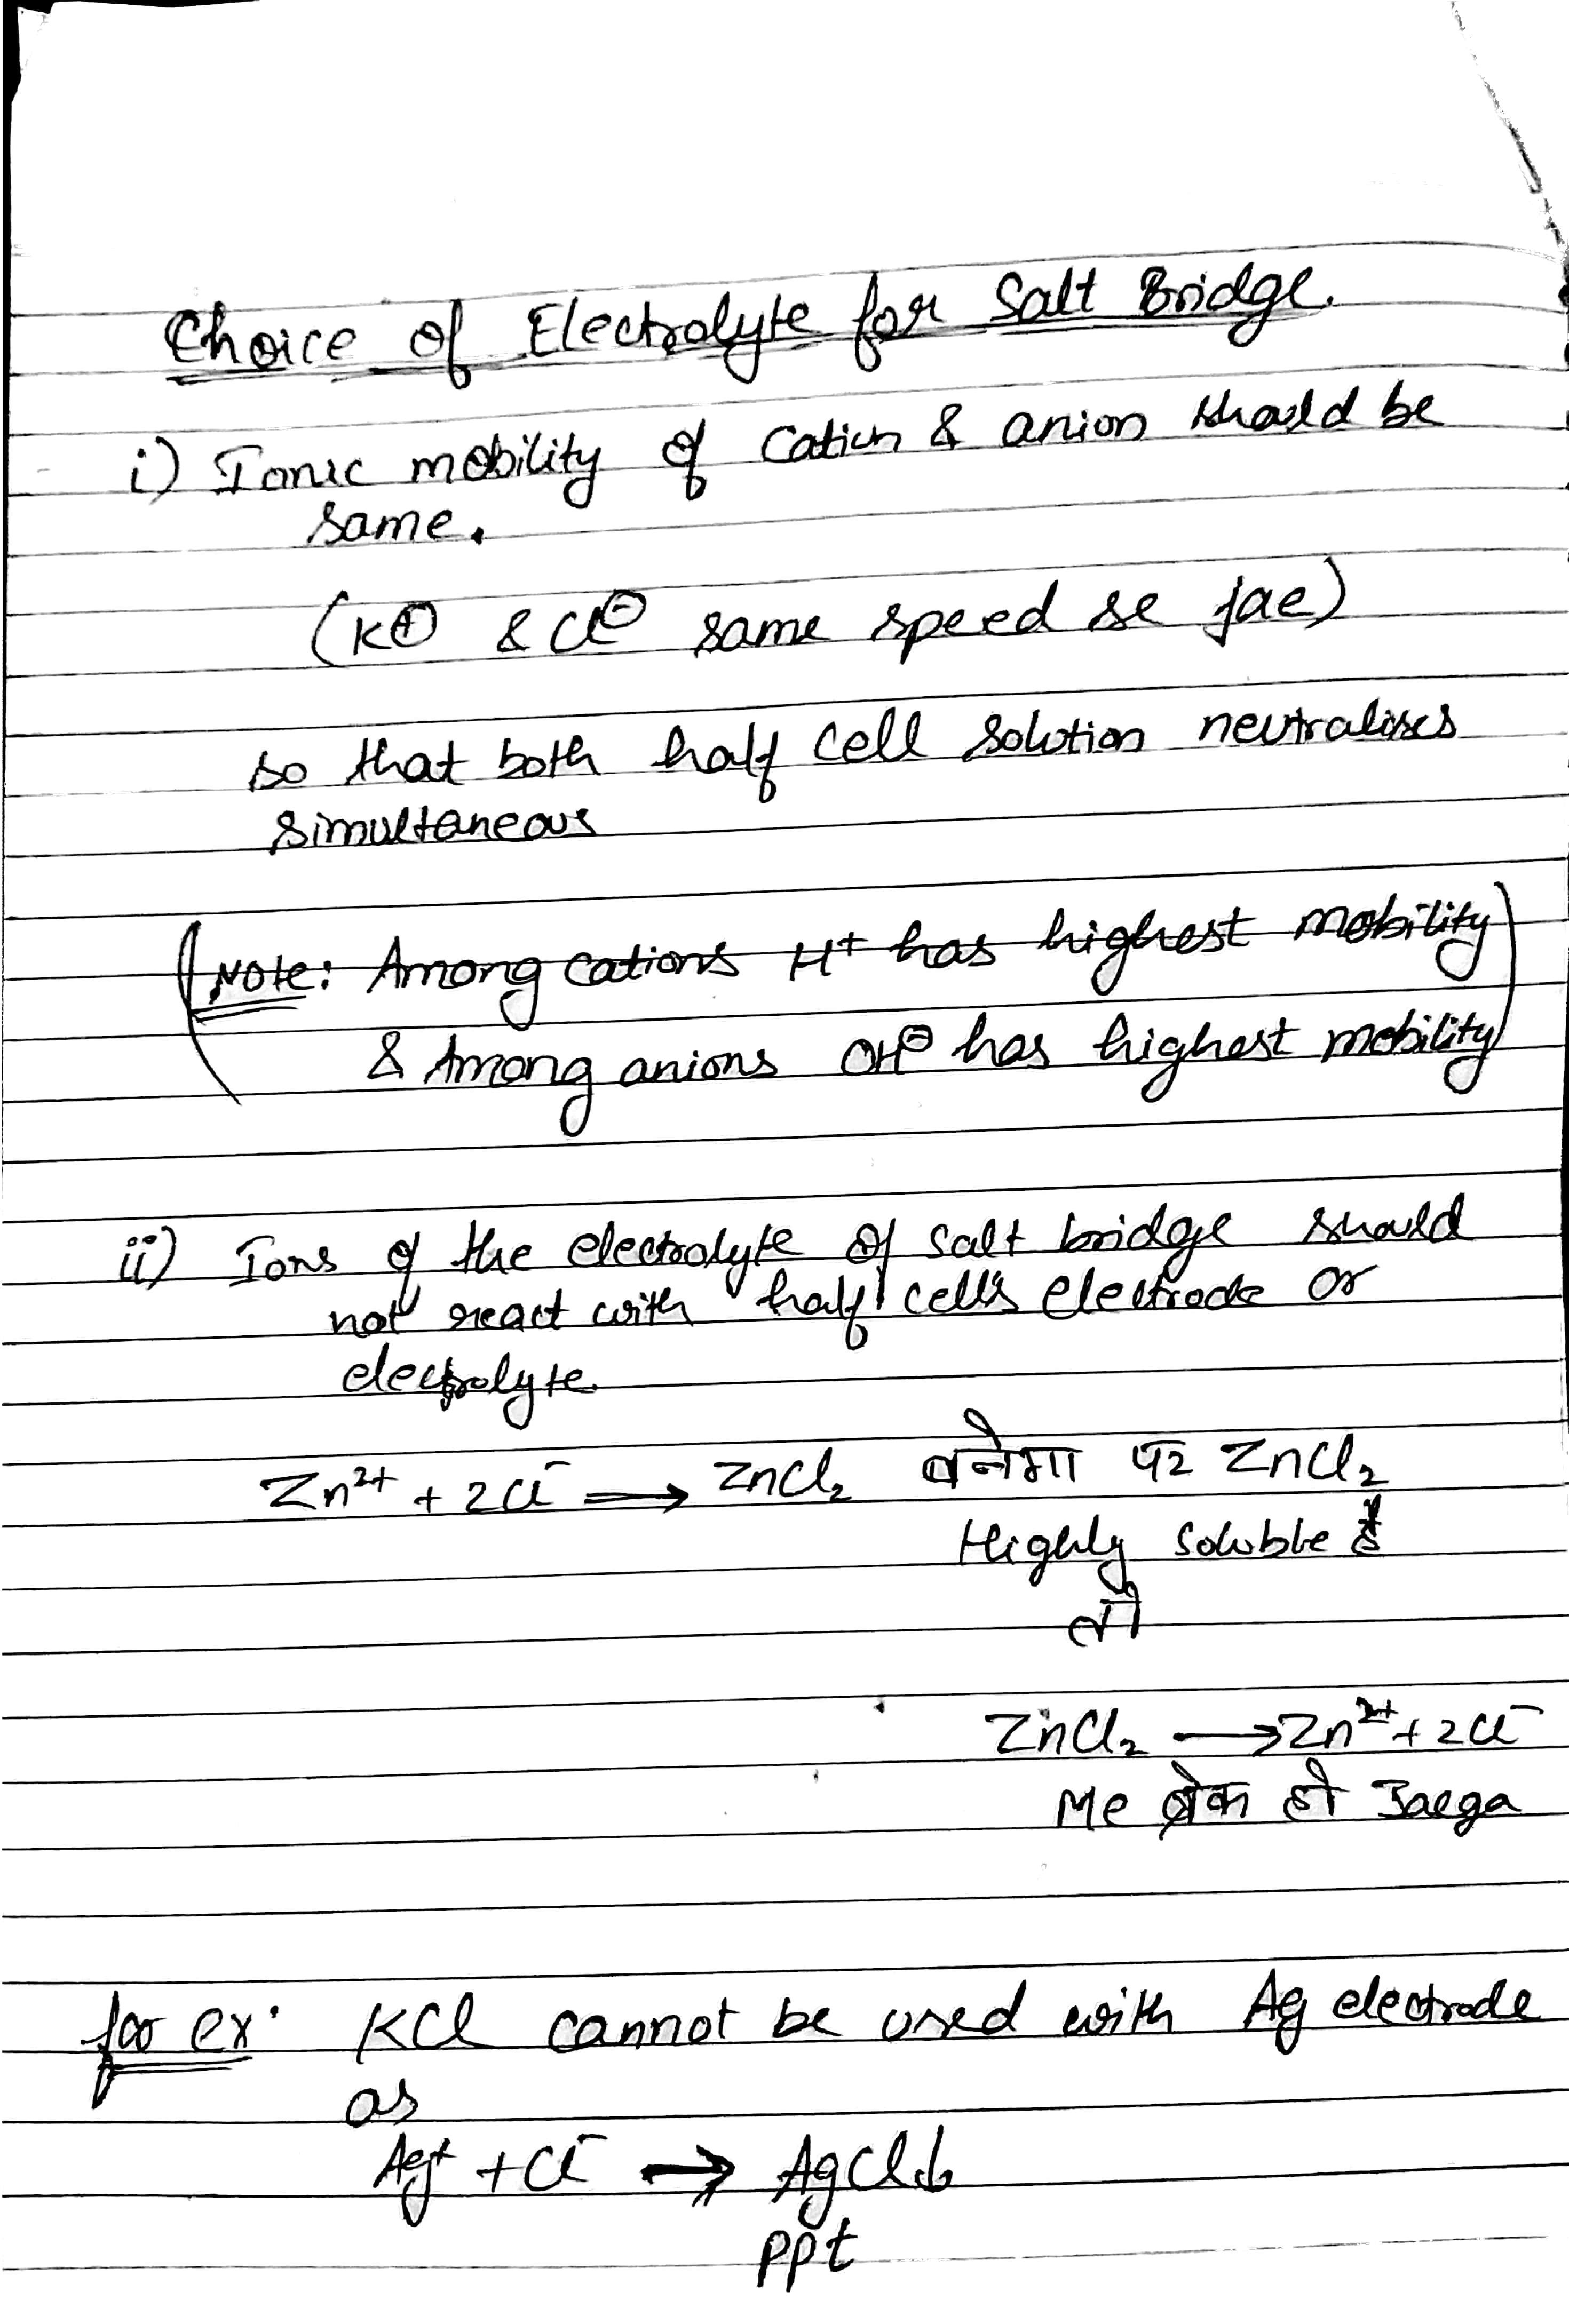 Choice of Electrolyte for Salt Bridge.
i) Ionic mobility of Cation & anion should be
same.
(K⊕ & Cl⊖ same speed se jae)
so that both half cell solution neutralises
simultaneous
(NOte: Among cations H⁺ has highest mobility
& Among anions OH⊖ has highest mobility)
ii) Ions of the electrolyte of salt bridge should
not react with half cell's electrode or
electrolyte.
Zn²⁺ + 2Cl⁻ ⟶ ZnCl₂ बनेगा पर ZnCl₂
Highly soluble है
तो
ZnCl₂ ⟶ Zn²⁺ + 2Cl⁻
Me ब्रेक हो Jaega
for ex: KCl cannot be used with Ag electrode
as
Ag⁺ + Cl⁻ ⟶ AgCl↓
ppt